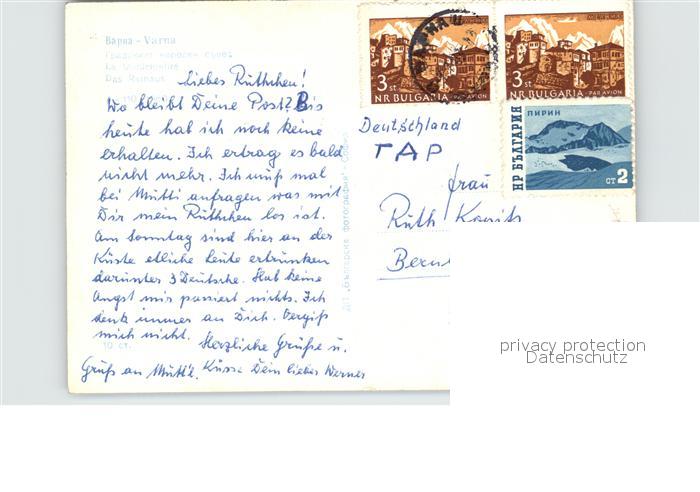 Варна - Varna
Градският народен съвет
Das Rathaus
Liebes Rüthchen!
Wo bleibt Deine Post? Bis
heute hab ich noch keine
erhalten. Ich ertrag es bald
nicht mehr. Ich muß mal
bei Mutti anfragen was mit
Dir mein Rüthchen los ist.
Am Sonntag sind hier an der
Küste etliche Leute ertrunken
darunter 3 Deutsche. Hab keine
Angst mir passiert nichts. Ich
denk immer an Dich. Vergiß
mich nicht.
Herzliche Grüße u.
Küsse Dein lieber Werner
Gruß an Mutti.
10 ст.
ДП „Българска фотография" - София
3 st
NR BULGARIA
PAR AVION
3 st
NR BULGARIA
PAR AVION
ПИРИН
НР БЪЛГАРИЯ
СТ 2
Deutschland
ГДР
Frau
Ruth
privacy protection
Datenschutz